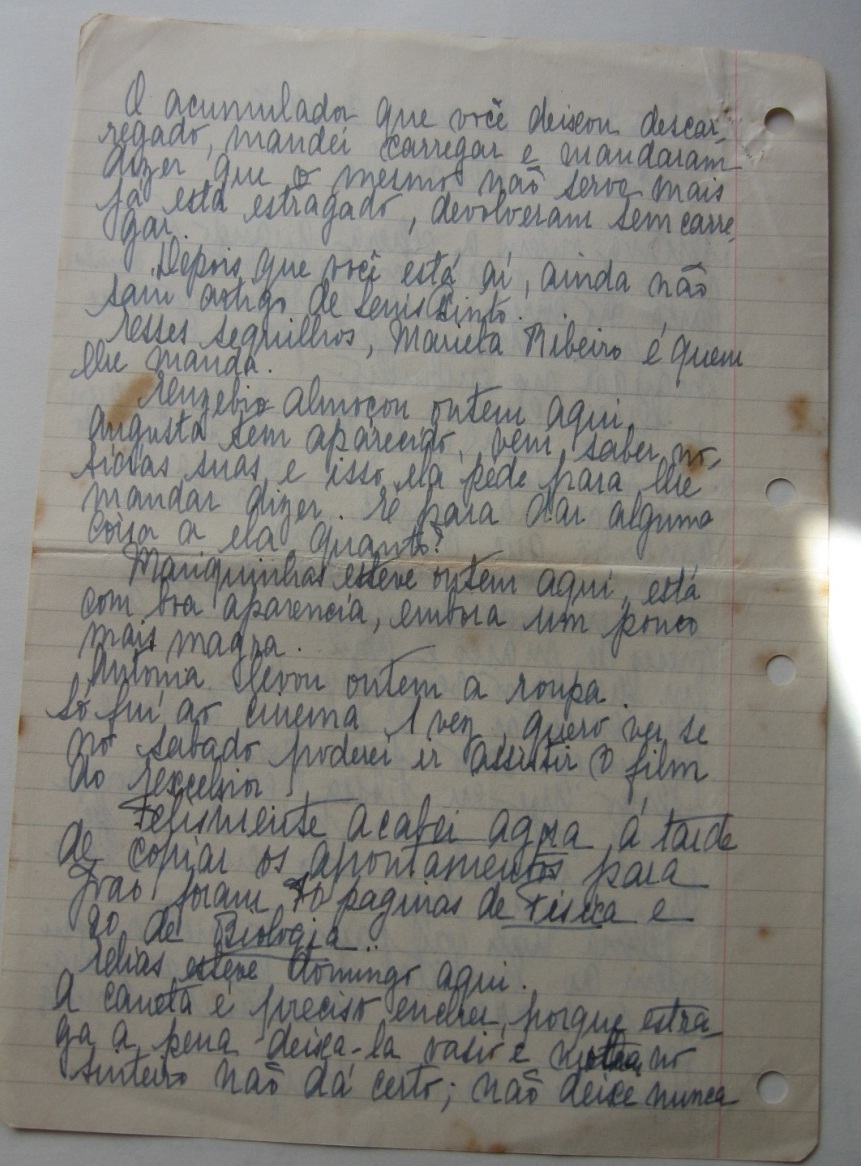 O acumulador que você deixou descar-
regado, mandei carregar e mandaram
dizer que o mesmo não serve mais
já está estragado, devolveram sem carre-
gar.
Depois que você está aí, ainda não
saiu artigo de Pinto.
Esses sequilhos, Marieta Ribeiro é quem
lhe manda.
Euzebio almoçou ontem aqui.
Augusta tem aparecido, vem saber no-
ticias suas e isso ela pede para lhe
mandar dizer. É para dar alguma
coisa a ela quanto?
Mariquinhas esteve ontem aqui, está
com boa aparencia, embora um pouco
mais magra.
Antonia levou ontem a roupa.
Só fui ao cinema 1 vez, quero ver se
no sabado poderei ir assistir o film
do Excelsior
Felismente acabei agora á tarde
de copiar os apontamentos para
João foram 70 paginas de Fisica e
90 de Biologia.
Elias esteve domingo aqui.
A caneta é preciso encher, porque estra-
ga a pena deixa-la vasio e no
tinteiro não dá certo; não deixe nunca